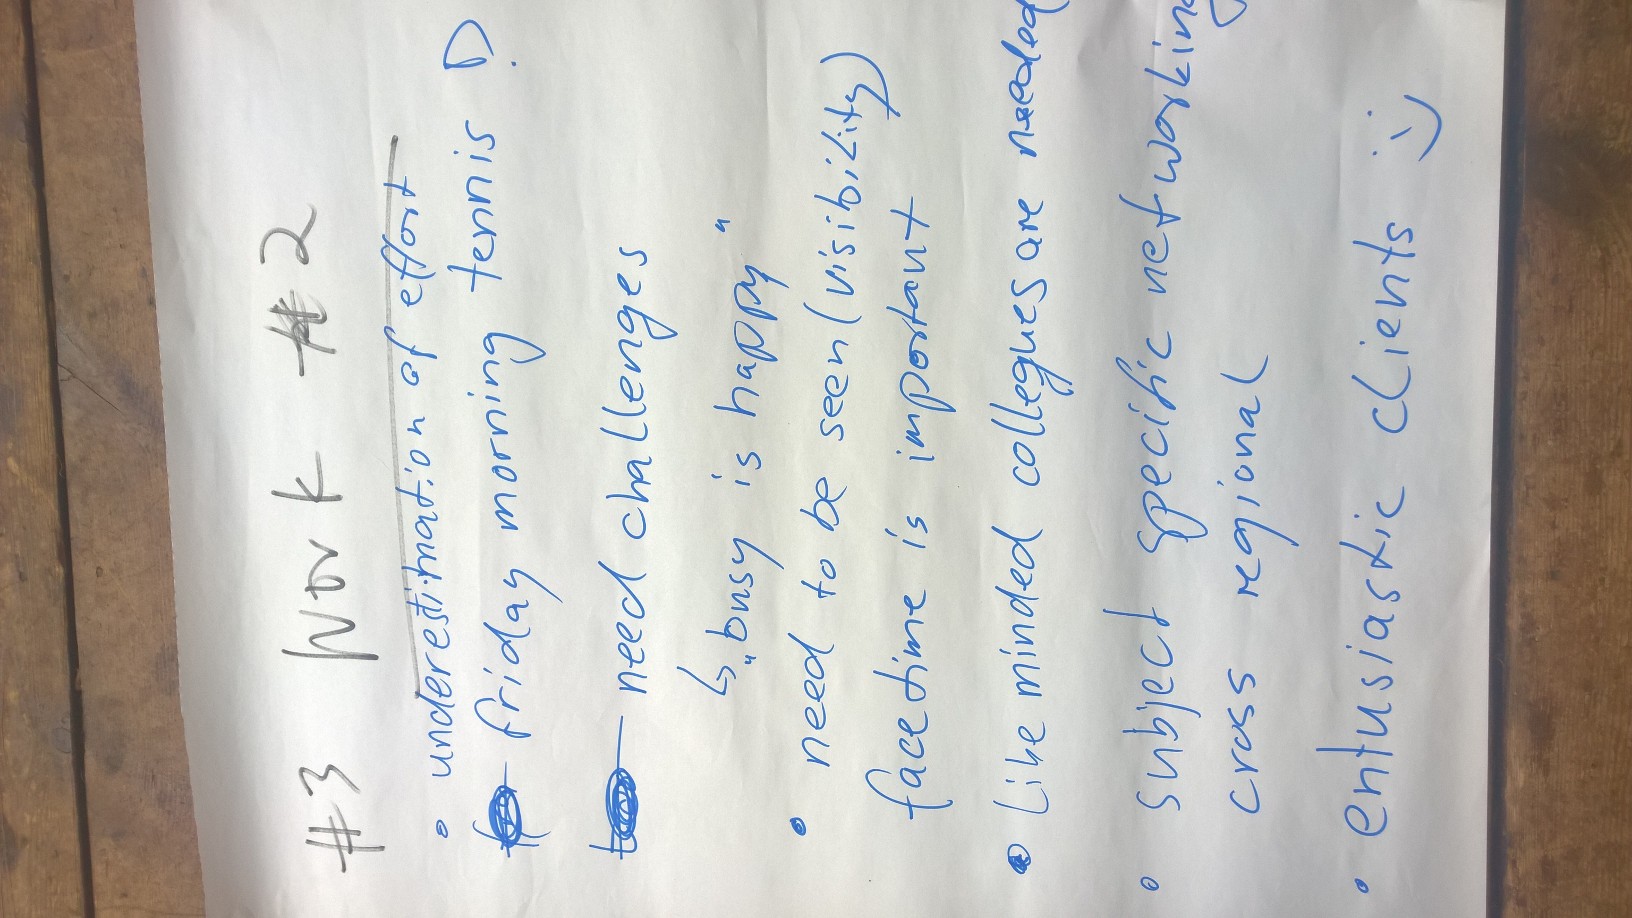 #3 Work #2
• underestimation of effort
friday morning tennis
— need challenges
↳ „busy is happy"
• need to be seen (visibility)
facetime is important
• Like minded collegues are needed
• subject specific networking
cross regional
• entusiastic clients :)